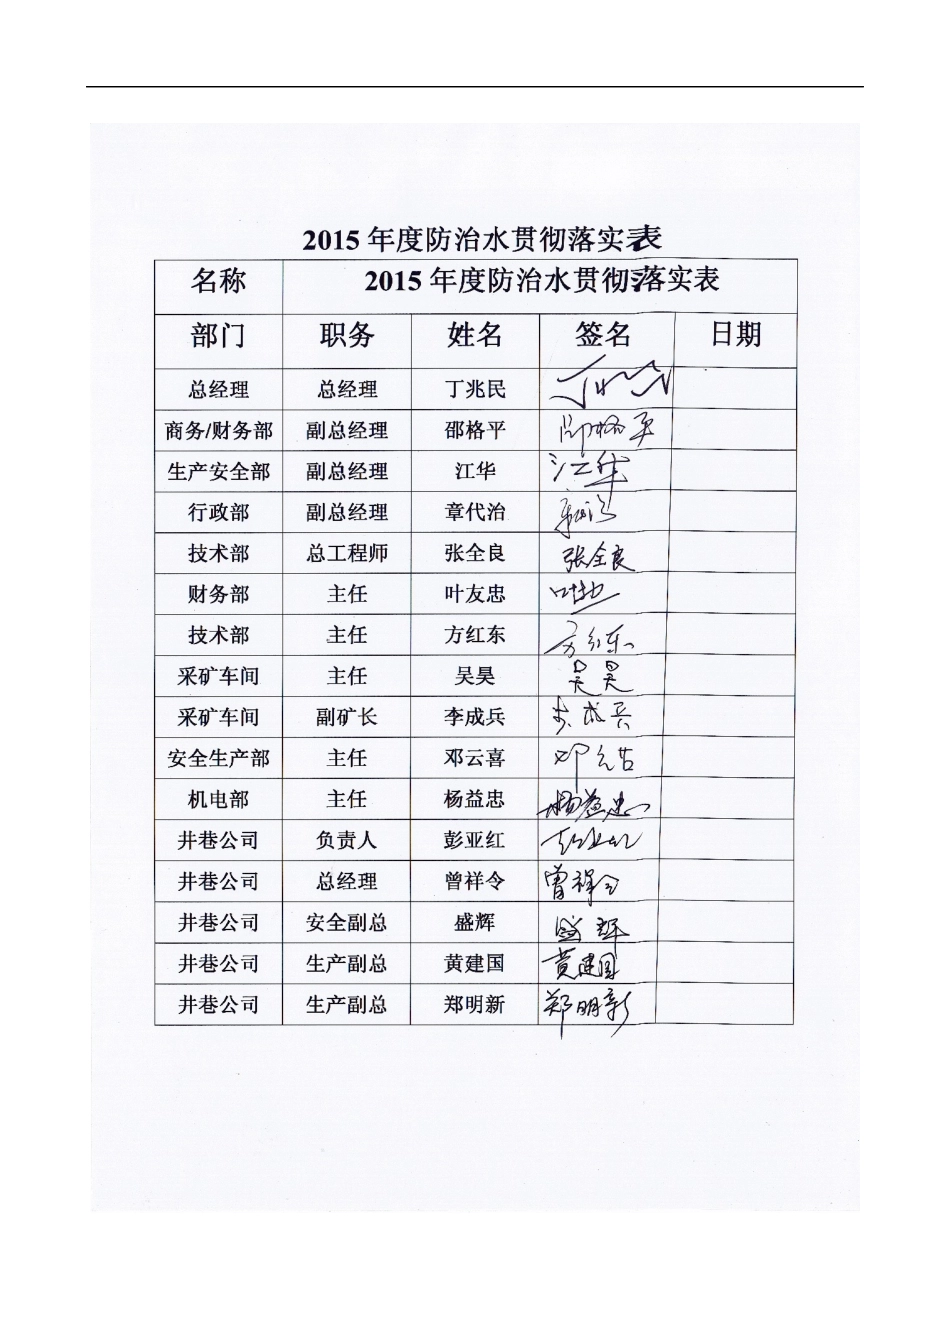 2015 年度防治水贯彻落实表
名称 2015 年度防治水贯彻落实表
部门 职务 姓名 签名 日期
总经理 总经理 丁兆民
商务/财务部 副总经理 邵格平 邵格平
生产安全部 副总经理 江华 江华
行政部 副总经理 章代治
技术部 总工程师 张全良 张全良
财务部 主任 叶友忠
技术部 主任 方红东 方红东
采矿车间 主任 吴昊 吴昊
采矿车间 副矿长 李成兵 李成兵
安全生产部 主任 邓云喜
机电部 主任 杨益忠 杨益忠
井巷公司 负责人 彭亚红
井巷公司 总经理 曾祥令 曾祥令
井巷公司 安全副总 盛辉 盛辉
井巷公司 生产副总 黄建国 黄建国
井巷公司 生产副总 郑明新 郑明新